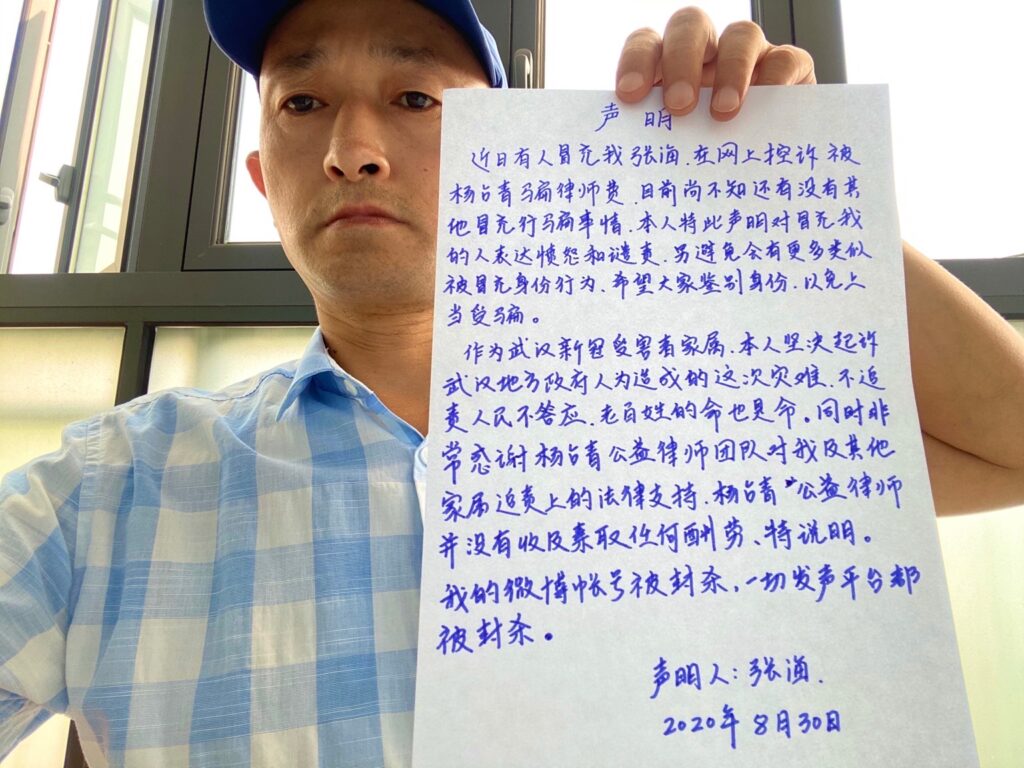 声明
近日有人冒充我张海.在网上控诉被
杨占青骗律师费.目前尚不知还有没有其
他冒充行骗事情.本人特此声明对冒充我
的人表达愤怨和谴责.另避免会有更多类似
被冒充身份行为.希望大家鉴别身份.以免上
当受骗。
作为武汉新冠受害者家属.本人坚决起诉
武汉地方政府人为造成的这次灾难.不追
责人民不答应.老百姓的命也是命。同时非
常感谢杨占青公益律师团队对我及其他
家属追责上的法律支持.杨占青"公益律师
并没有收及索取任何酬劳、特说明。
我的微博帐号被封杀,一切发声平台都
被封杀。
声明人:张海.
2020年8月30日